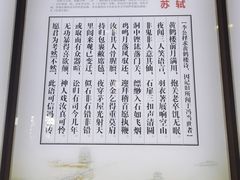 苏轼
[李公择求黄鹤楼诗，因记旧所闻于冯当世者]
黄鹤楼前月满川，抱关老卒饥不眠。
夜闻三人笑语言，羽衣著屐响空山。
非鬼非人意其仙，石扉三叩声清圆。
洞中铿鈜落门关，缥缈入石如飞烟。
鸡鸣月落风驭还，迎拜稽首愿执鞭。
汝非其人骨腥膻，黄金乞得重莫肩。
持归包裹敝席毡，夜穿茅屋光射天。
里闾来观已变迁，似石非石铅非铅。
或取而有众愤喧，讼归有司今几年。
无功暴得喜欲颠，神人戏汝真可怜。
愿君为考然不然，此语可信冯公传。